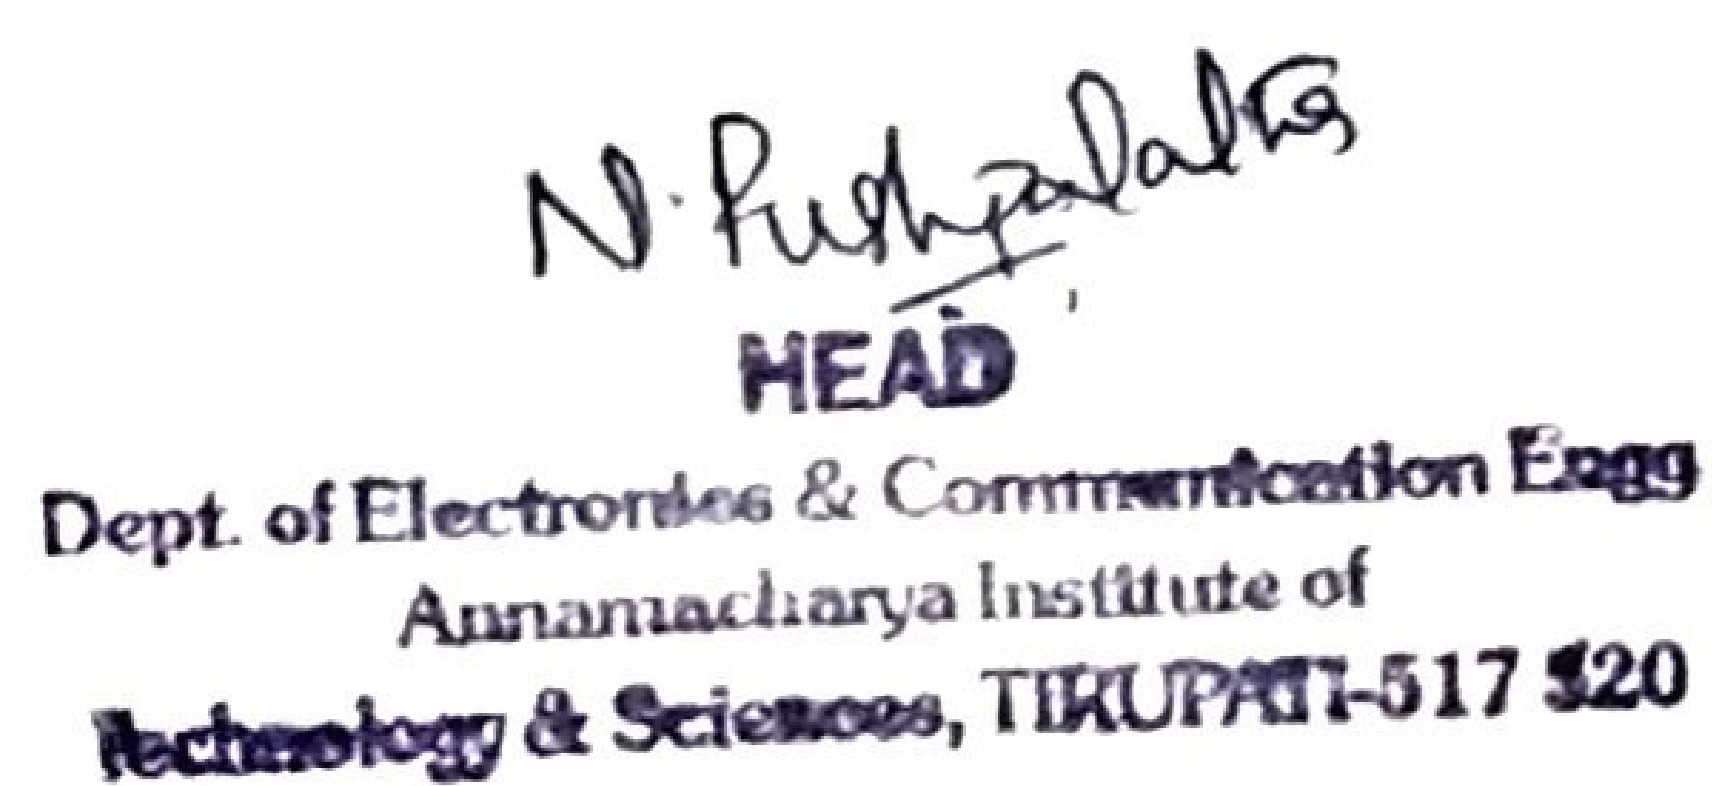 N. Pushpalatha
HEAD
Dept. of Electronics & Communication Engg
Annamacharya Institute of
Technology & Sciences, TIRUPATI-517 520